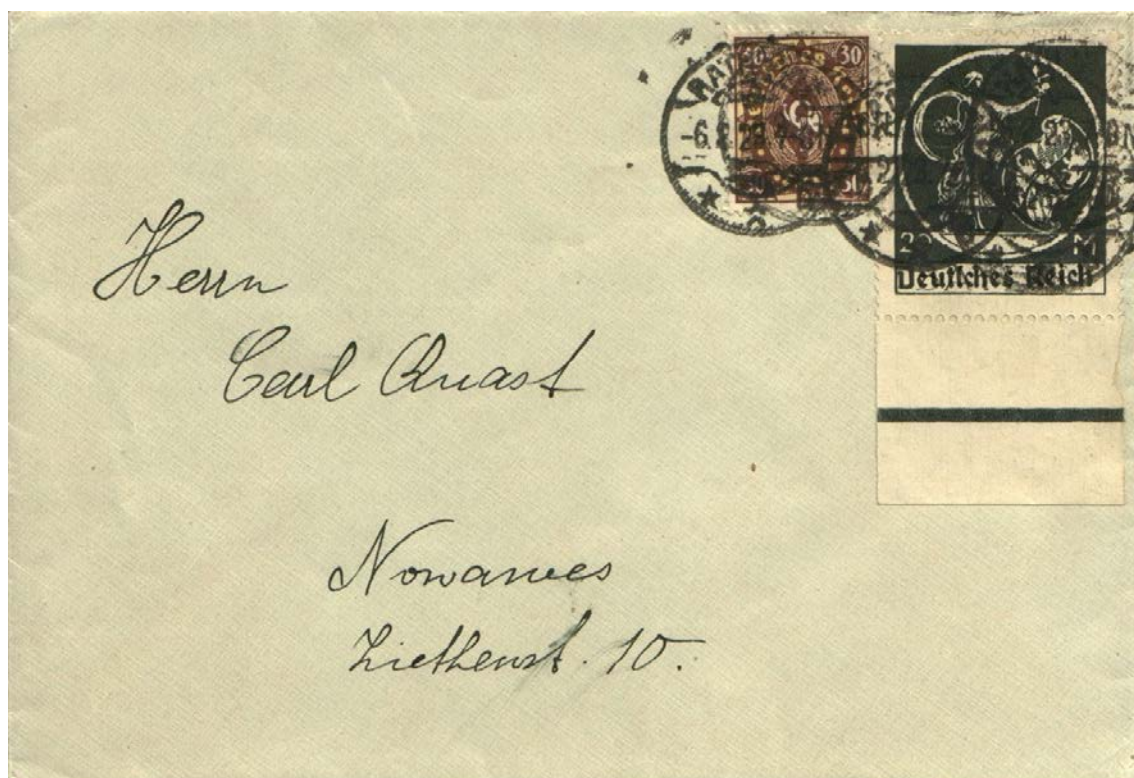 30 30
20 M
Deutsches Reich
Herrn
Carl Quast
Nowawes
Ziethenst. 10.